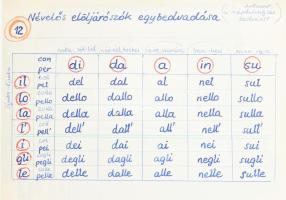 12
Névelős elöljárószók egybeolvadása
con per di da a in su
il col pel del dal al nel sul
lo collo pello dello dallo allo nello sullo
la colla pella della dalla alla nella sulla
l' coll' pell' dell' dall' all' nell' sull'
i coi pei dei dai ai nei sui
gli cogli pegli degli dagli agli negli sugli
le colle pelle delle dalle alle nelle sulle